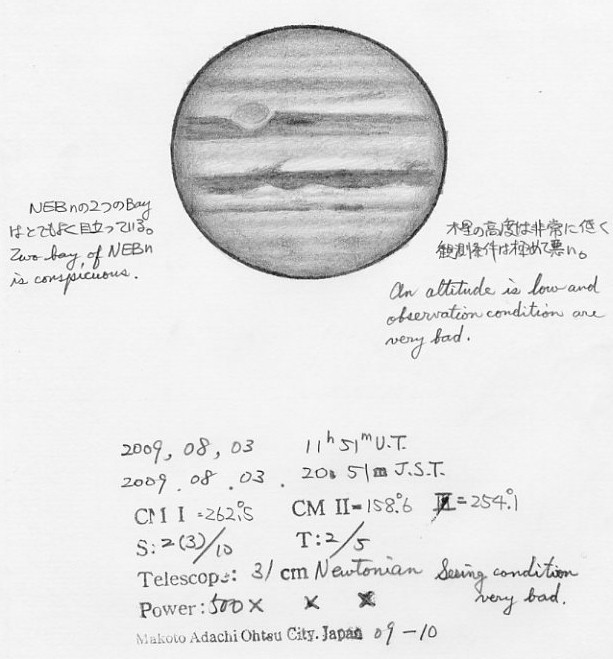 NEBnの2つのBay
はとてもよく目立っている。
Two bay of NEBn
is conspicuous.
木星の高度は非常に低く
観測条件は極めて悪い。
An altitude is low and
observation condition are
very bad.
2009, 08, 03 11h 51m U.T.
2009. 08. 03. 20h 51m J.S.T.
CM I =262.°5 CM II=158.°6 III=254.°1
S:2(3)/10 T:2/5
Telescope: 31 cm Newtonian Seeing condition
very bad.
Power:500× × ×
Makoto Adachi Ohtsu City. Japan 09-10